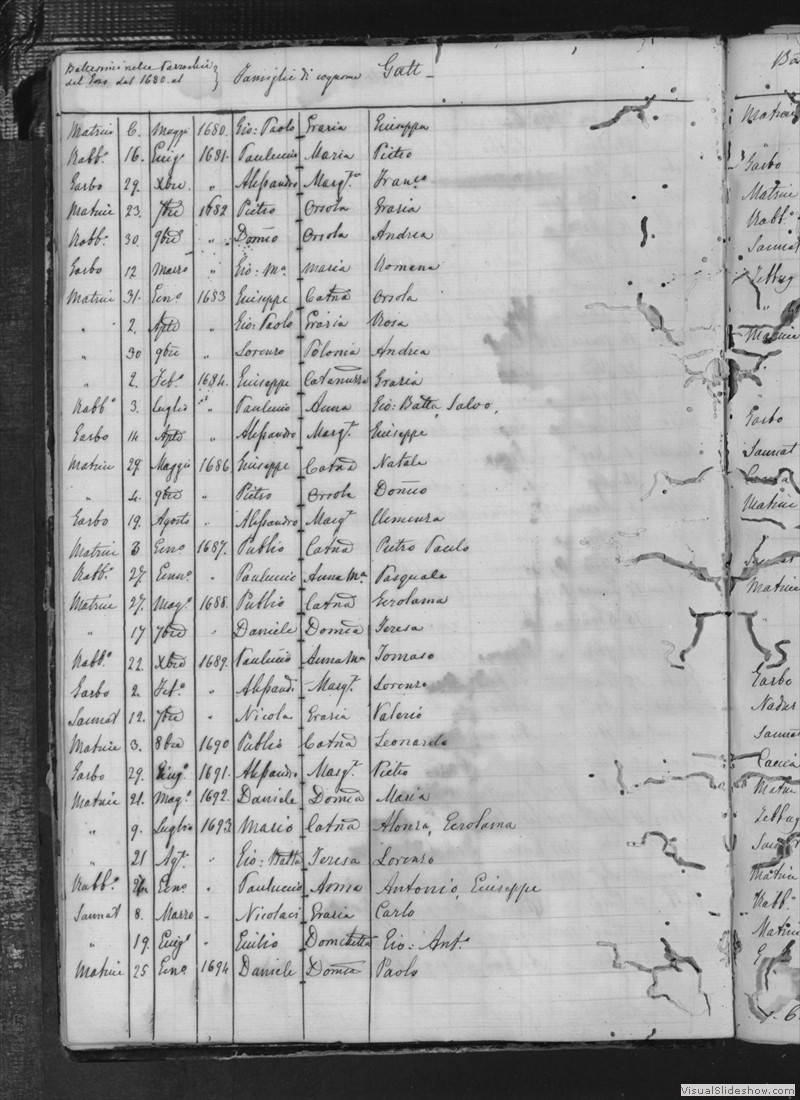 Battesimi nelle Parrochie del Gozo dal 1680 al } Famiglie di cognome Gatt Ba
Matrice 6. Maggio 1680. Gio: Paolo Grazia Giuseppa
Rabb.º 16. Giug.º 1681. Paulucio Maria Pietro
Garbo 29. Xbre. " Alessandro Marg.ta Fran.co
Matrice 23. 7bre 1682 Pietro Orsola Grazia
Rabb.º 30. 9bre " Domco Orsola Andrea
Garbo 12 Marzo " Gio: Ma. Maria Romana
Matrice 31. Gen.º 1683 Giuseppe Catna Orsola
" 2. Aple " Gio: Paolo Grazia Rosa
" 30 9bre " Lorenzo Polonia Andrea
" 2. Feb.º 1684. Giuseppe Catanuzza Grazia
Rabb.º 3. Luglio " Paulucio Anna Gio: Batta, Salvo,
Garbo 14 Aple " Alessandro Marg.t Giuseppe
Matrice 29. Maggio 1686 Giuseppe Catna Natale
" 4. 9bre " Pietro Orsola Domco
Garbo 19. Agosto " Alessandro Marg.t Clemenza
Matrice 3 Gen.º 1687. Publio Catna Pietro Paulo
Rabb.º 27. Genn.º " Paulucio Anna Ma. Pasquale
Matrice 27. Mag.º 1688. Publio Catna Gerolama
" 17 7bre " Daniele Domca Teresa
Rabb.º 22. Xbre 1689. Paulucio Anna Ma. Tomaso
Garbo 2. Feb.º " Alessand. Marg.t Lorenzo
Sannat 12. 7bre " Nicola Grazia Valerio
Matrice 3. 8bre 1690 Publio Catna Leonardo
Garbo 29. Giug.º 1691. Alessandro Marg.t Pietro
Matrice 21. Mag.º 1692. Daniele Domca Maria
" 9. Luglio 1693. Mario Catna Alonza, Gerolama
" 21 Ag.t " Gio: Batta Teresa Lorenzo
Rabb.º Gen.º " Paulucio Anna Antonio, Giuseppe
Sannat 8. Marzo " Nicolaci Grazia Carlo
" 19. Giug.º " Giulio Domenica Gio: Ant.º
Matrice 25 Gen.º 1694 Daniele Domca Paolo
Matrice
Garbo
Matrice
Rabb.º
Sannat
Zebbug
"
Matrice
Garbo
Sannat
Matrice
Sannat
Matrice
Garbo
Nadur
Sannat
Caccia
Matrice
Zebbug
Matrice
Rabb.º
Matrice
VisualSlideshow.com